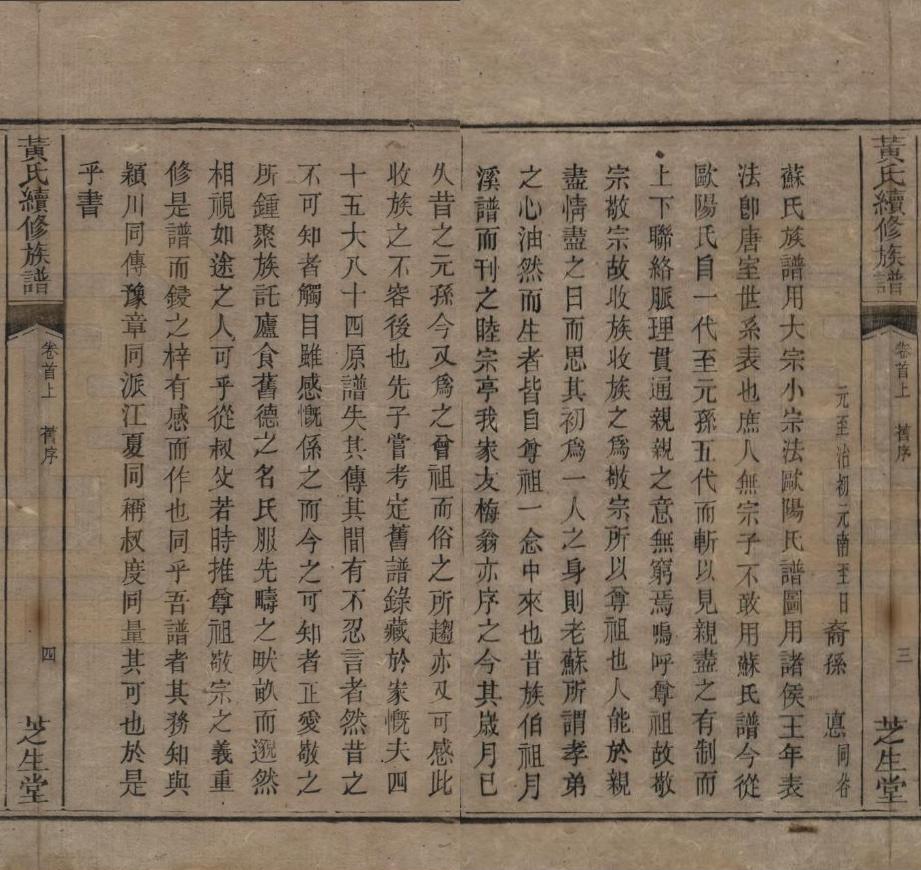 黃氏續修族譜 卷首上 舊序 三 芝生堂
元至治初元南至日裔孫 同
蘇氏族譜用大宗小宗法歐陽氏譜圖用諸侯王年表
法卽唐室世系表也庶人無宗子不敢用蘇氏譜今從
歐陽氏自一代至元孫五代而斬以見親盡之有制而
上下聯絡脈理貫通親親之意無窮焉嗚呼尊祖故敬
宗敬宗故收族收族之爲敬宗所以尊祖也人能於親
盡情盡之日而思其初爲一人之身則老蘇所謂孝弟
之心油然而生者皆自尊祖一念中來也昔族伯祖月
溪譜而刊之睦宗亭我家友梅翁亦序之今其歲月已
久昔之元孫今又爲之曾祖而俗之所趨亦又可感此
收族之不容後也先子嘗考定舊譜錄藏於家慨夫四
十五大八十四原譜失其傳其間有不忍言者然昔之
不可知者觸目雖感慨係之而今之可知者正愛敬之
所鍾聚族託廬食舊德之名氏服先疇之畎畝而邈然
相視如途之人可乎從叔父若時推尊祖敬宗之義重
修是譜而鋟之梓有感而作也同乎吾譜者其務知與
潁川同傳豫章同派江夏同稱叔度同量其可也於是
乎書
黃氏續修族譜 卷首上 舊序 四 芝生堂